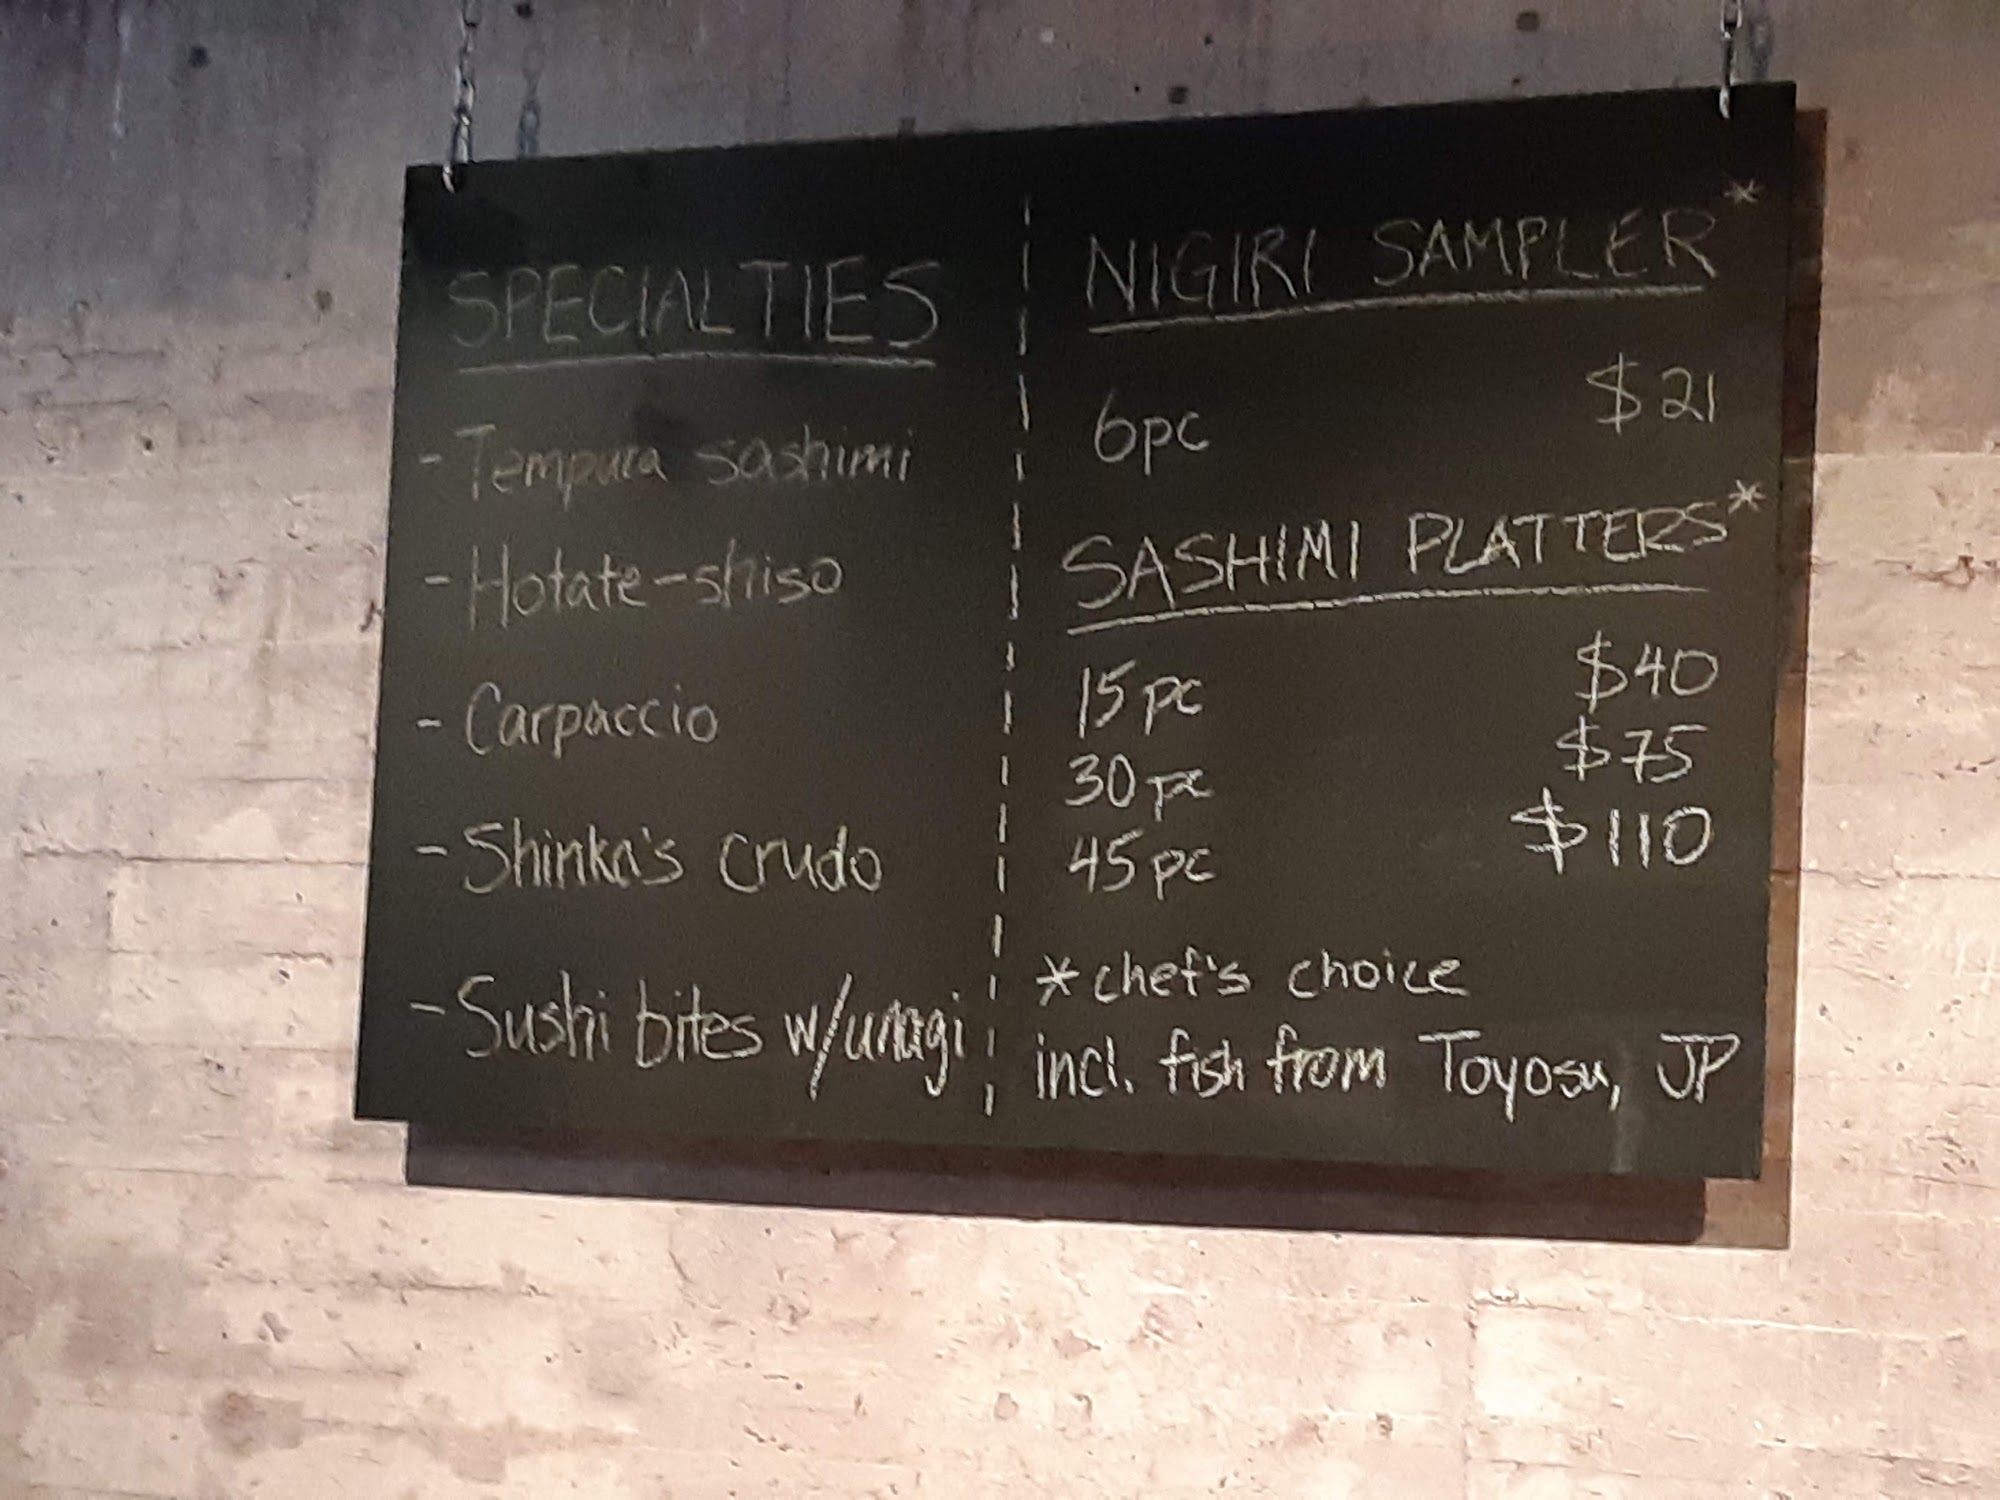 SPECIALTIES
- Tempura sashimi
- Hotate-shiso
- Carpaccio
- Shinka's crudo
- Sushi bites w/unagi
NIGIRI SAMPLER*
6pc $21
SASHIMI PLATTERS*
15 pc $40
30 pc $75
45 pc $110
*chef's choice
incl. fish from Toyosu, JP